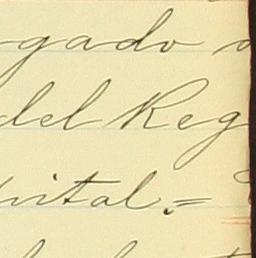 gado
del Reg
pital.=